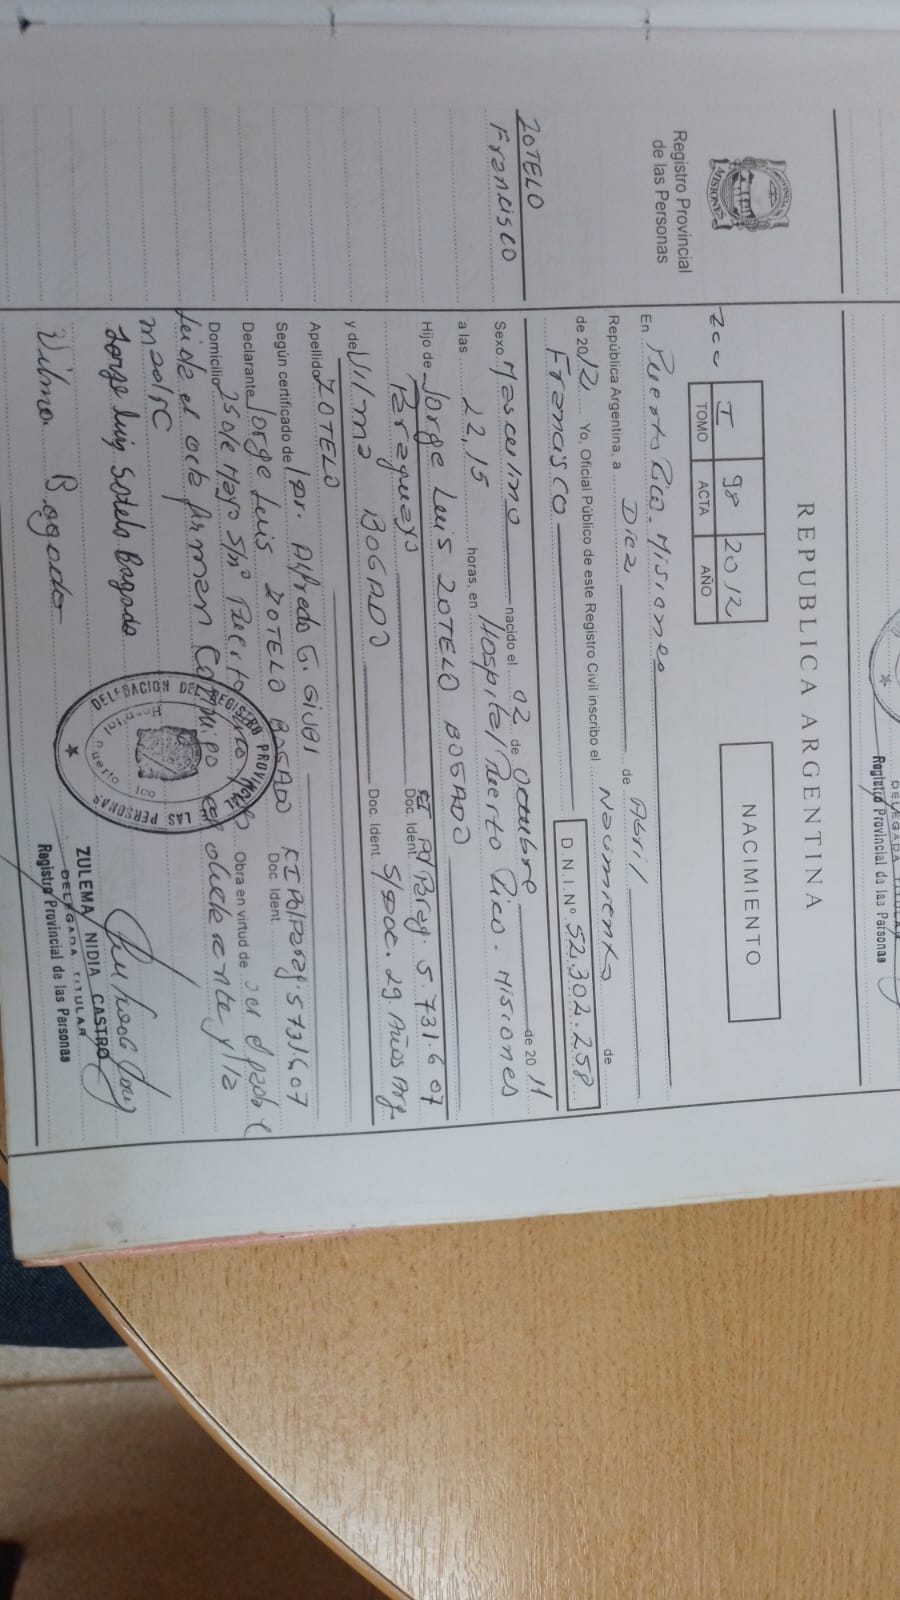 DELEGADA TITULAR
Registro Provincial de las Personas
REPUBLICA ARGENTINA
Registro Provincial
de las Personas
MISIONES
I 98 2012
TOMO ACTA AÑO
NACIMIENTO
ZOTELO
Francisco
En Puerto Rico. Misiones
República Argentina, a Diez de Abril de
de 2012 Yo, Oficial Público de este Registro Civil inscribo el Nacimiento de
Francisco D.N.I.Nº 52.302.258
Sexo Masculino nacido el 02 de Octubre de 2011
a las 22,15 horas, en Hospital Puerto Rico - Misiones
Hijo de Jorge Luis ZOTELO BOGADO
Paraguayo Doc. Ident. CI Pol Parag. 5.731.607
y de Vilma BOGADO Doc. Ident. S/Doc. 29. Años Arg.
Apellido ZOTELO
Según certificado de Dr. Alfredo G.
Declarante Jorge Luis ZOTELO BOGADO Doc. Ident. CI Pol Parag. 5731607
Domicilio 25 de Mayo s/nº Puerto Rico Obra en virtud de ser el padre
Leida el acta firman conmigo declarante y la
madre
Jorge Luis Sotelo Bogado
Vilma Bogado
DELEGACION DEL REGISTRO PROVINCIAL DE LAS PERSONAS
Hospital
Puerto Rico
ZULEMA NIDIA CASTRO
DELEGADA TITULAR
Registro Provincial de las Personas